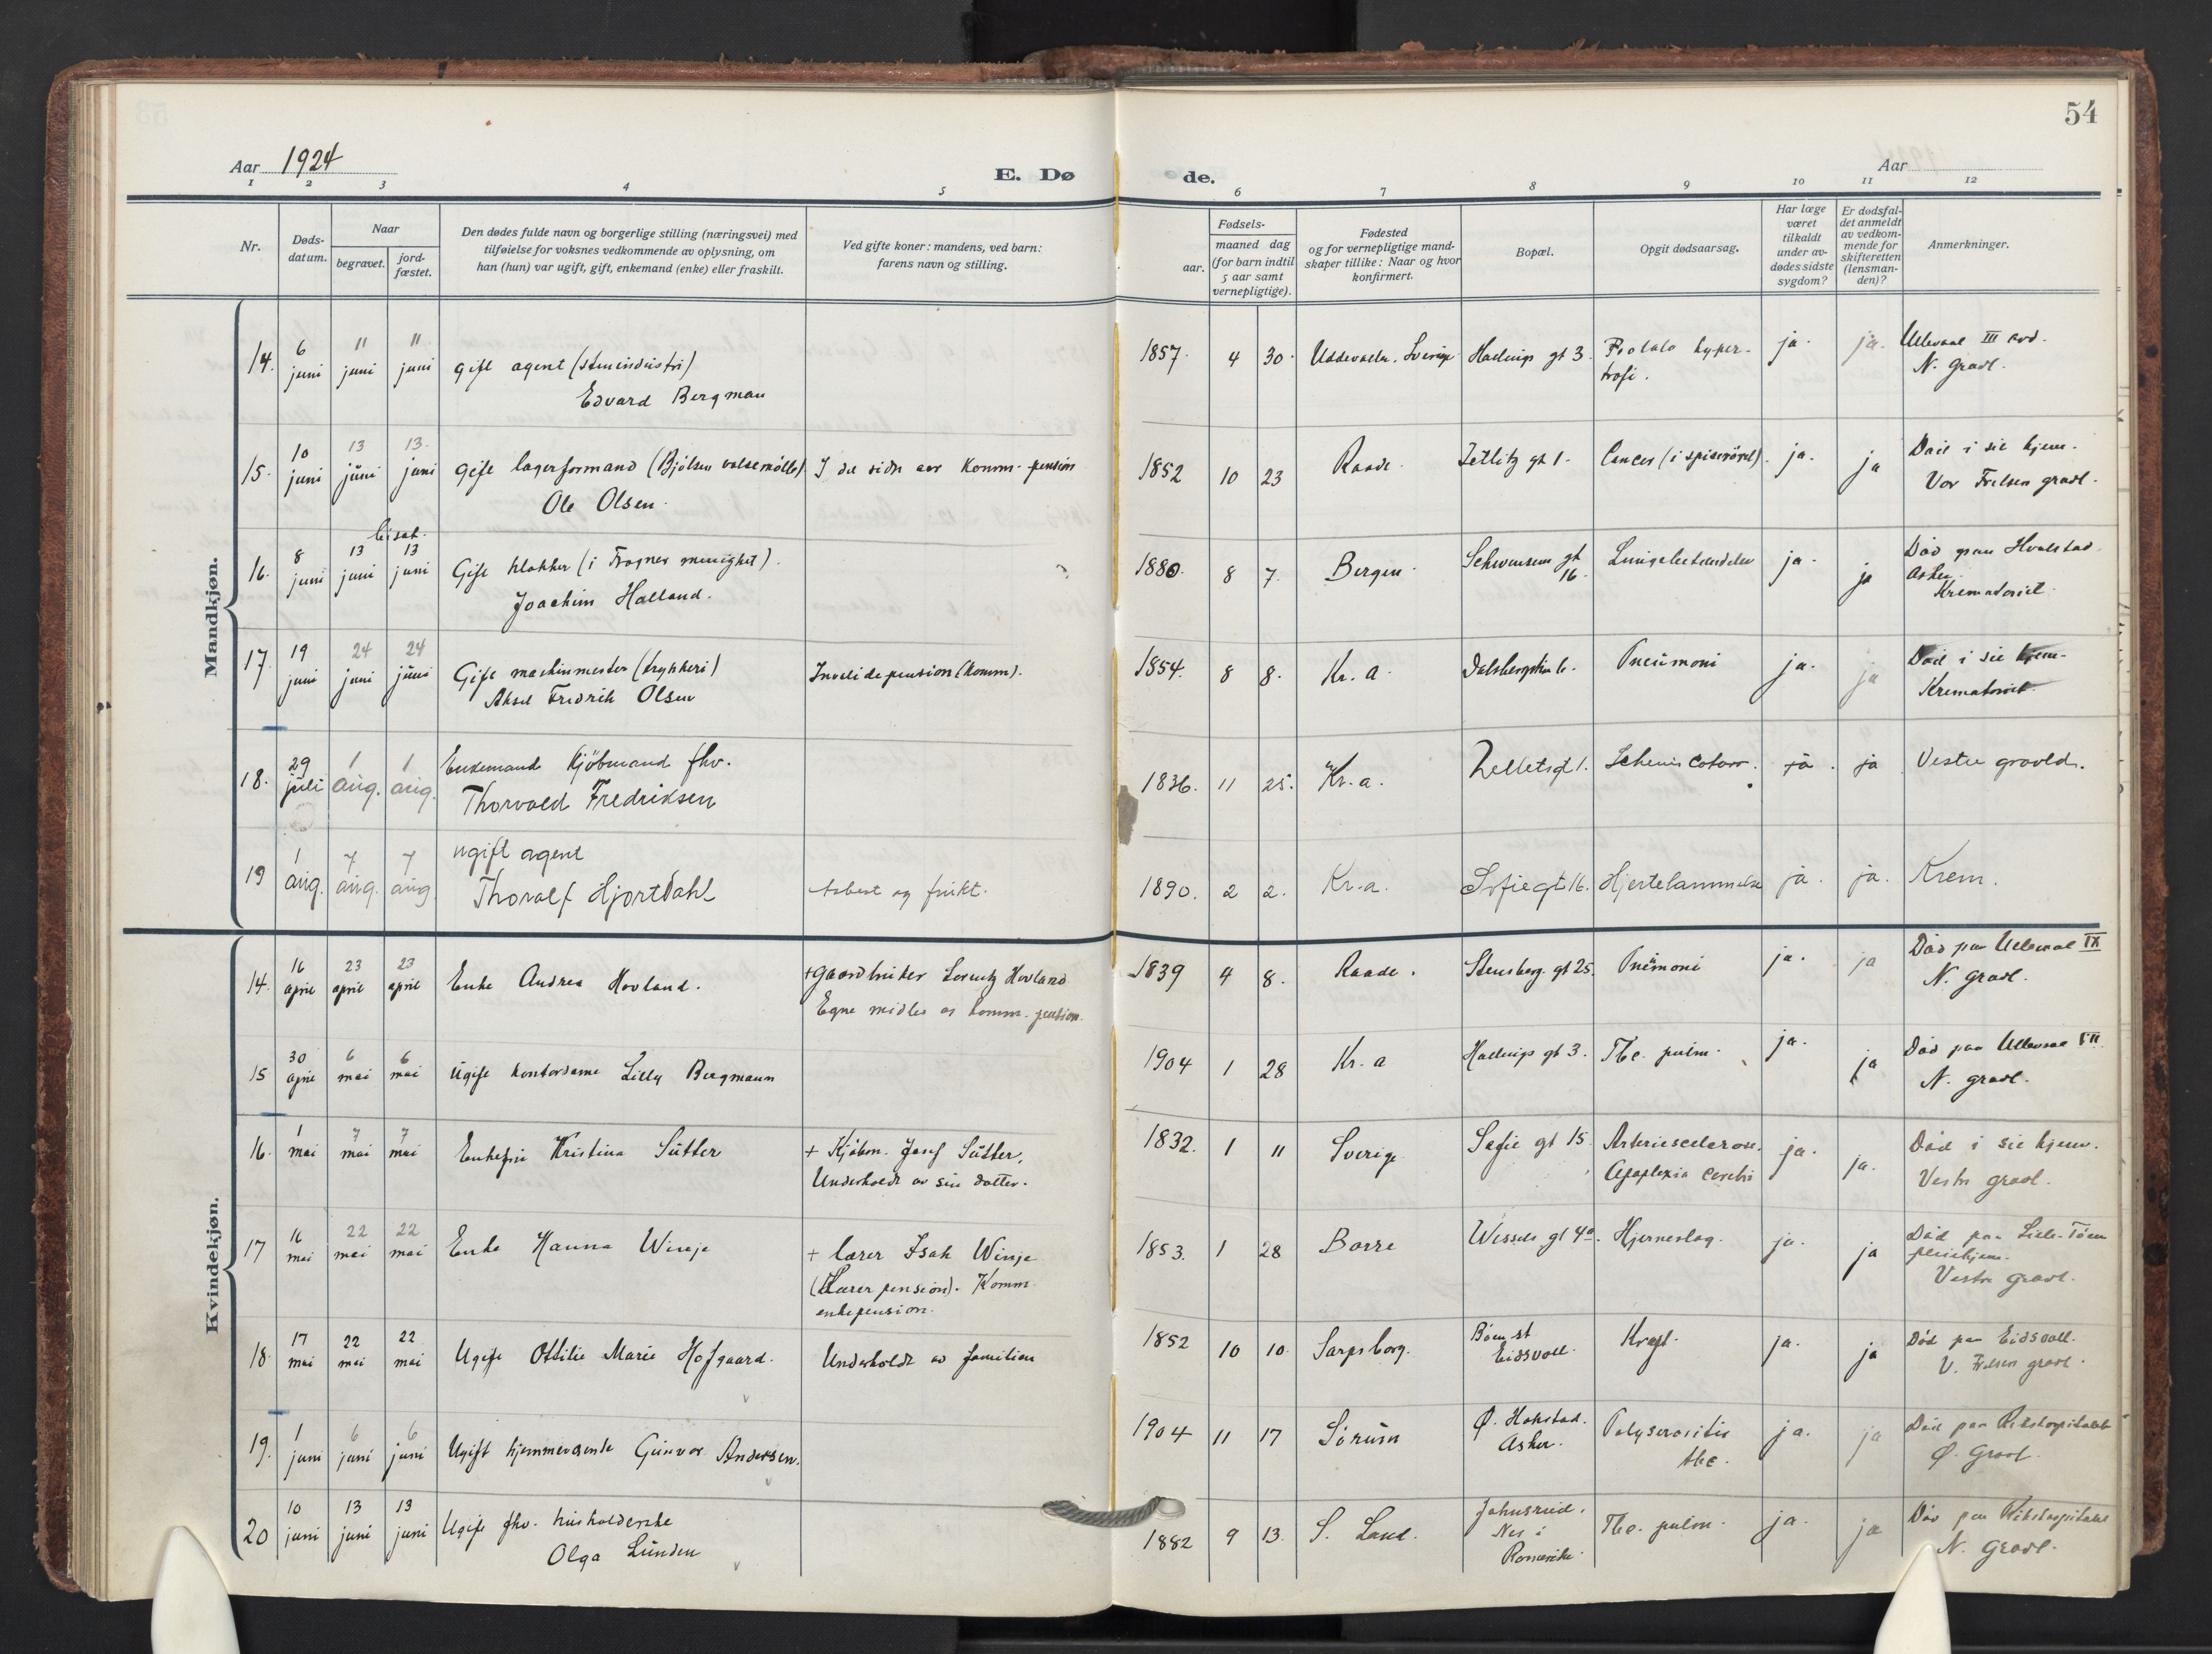 54
Aar 1924
E. Dø de.
Aar
1 2 3 4 5 6 7 8 9 10 11 12
Nr.
Døds-
datum.
Naar
begravet.
jord-
fæstet.
Den dødes fulde navn og borgerlige stilling (næringsvei) med
tilføielse for voksnes vedkommende av oplysning, om
han (hun) var ugift, gift, enkemand (enke) eller fraskilt.
Ved gifte koner: mandens, ved barn:
farens navn og stilling.
Fødsels-
aar.
maaned dag
(for barn indtil
5 aar samt
vernepligtige).
Fødested
og for vernepligtige mand-
skaper tillike: Naar og hvor
konfirmert.
Bopæl.
Opgit dødsaarsag.
Har læge
været
tilkaldt
under av-
dødes sidste
sygdom?
Er dødsfal-
det anmeldt
av vedkom-
mende for
skifteretten
(lensman-
den)?
Anmerkninger.
Mandkjøn.
14. 6 juni 11 juni 11 juni gift agent (stenindustri)
Edvard Bergman
1857. 4 30. Uddevalla. Sverige Hallings gt 3. Prostata hyper-
trofi. ja. ja. Ullevaal III avd.
N. gravl.
15. 10 juni 13 juni 13. juni Gift lagerformand (Bjølsen valsemølle) I det sidste aar komm. pension
Ole Olsen.
1852 10 23 Raade. Zetlitz gt 1. Cancer (i spiserøret). ja. ja Død i sit hjem.
Vor Frelsers gravl.
bisat.
16. 8 juni 13 juni 13 juni Gift klokker (i Frogner menighet).
Joachim Halland.
1880. 8 7. Bergen. Schwensens gt
16. Lungebetændelse ja. ja Død paa Hvalstad
Asker.
Krematoriet.
17. 19 juni 24 juni 24 juni Gift maskinmester (trykkeri) Invalidepension (komm).
Aksel Fredrik Olsen
1854. 8 8. Kr. a. Dalsbergstien 6. Pneumoni ja. ja Død i sit hjem.
Krematoriet.
18. 29 juli 1 aug. 1 aug. Enkemand Kjöbmand fhv.
Thorvald Fredriksen
1836. 11 25. Kr.a. ja. ja Vestre gravld.
19 1 aug. 7 aug. 7 aug ugift agent
Thoralf Hjortdahl Asbest og frukt.
1890. 2 2. Kr.a. Sofiegt 16. Hjertelammelse ja. ja. Krem.
Kvindekjøn.
14. 16 april 23 april 23 april Enke Andrea Hovland. + gaardbruker Lorentz Hovland
Egne midler og komm. pension.
1839 4 8. Raade. Stensberg. gt 25. Pneumoni ja. ja Død paa Ulleval IX
N. gravl.
15 30 april 6 mai 6 mai Ugift kontordame Lilly Bergmann
1904 1 28 Kr. a Hallings gt 3. Tbc. pulm. ja. ja Død paa Ullevaal VII
N. gravl.
16. 1 mai 7 mai 7 mai Enkefru Kristina Sütter + Kjøbm. Josef Sütter.
Underholdt av sin datter.
1832. 1 11 Sverige Sofie gt 15. Arteriesclerose.
Apoplexia cerebri ja. ja. Død i sit hjem.
Vestre gravl.
17 16 mai 22 mai 22 mai Enke Hanna Winje + lærer Isak Winje
(Lærerpension). Komm.
enkepension.
1853. 1 28 Borre Wessels gt 4a. Hjerneslag. ja. ja Død paa Lille-Tøien
pleiehjem.
Vestre gravl.
18. 17 mai 22 mai 22 mai Ugift Ottilie Marie Hofgaard. Underholdt av familien
1852 10 10. Sarpsborg. Bøn st
Eidsvoll. Kræft. ja. ja Død paa Eidsvoll.
V. Frelsers gravl.
19. 1 juni 6 juni 6 juni Ugift hjemmeværende Gunvor Andersen.
1904 11 17 Sörum Ø. Hakstad.
Asker. Polyserositis
tbc. ja. ja Død paa Rikshospitalet
Ø. Gravl.
20 10 juni 13 juni 13 juni Ugift fhv. husholderske
Olga Lunden
1882 9 13. S. Land.
Nes i
Romerike. Tbc. pulm. ja. ja Død paa Rikshospitalet
N. Gravl.